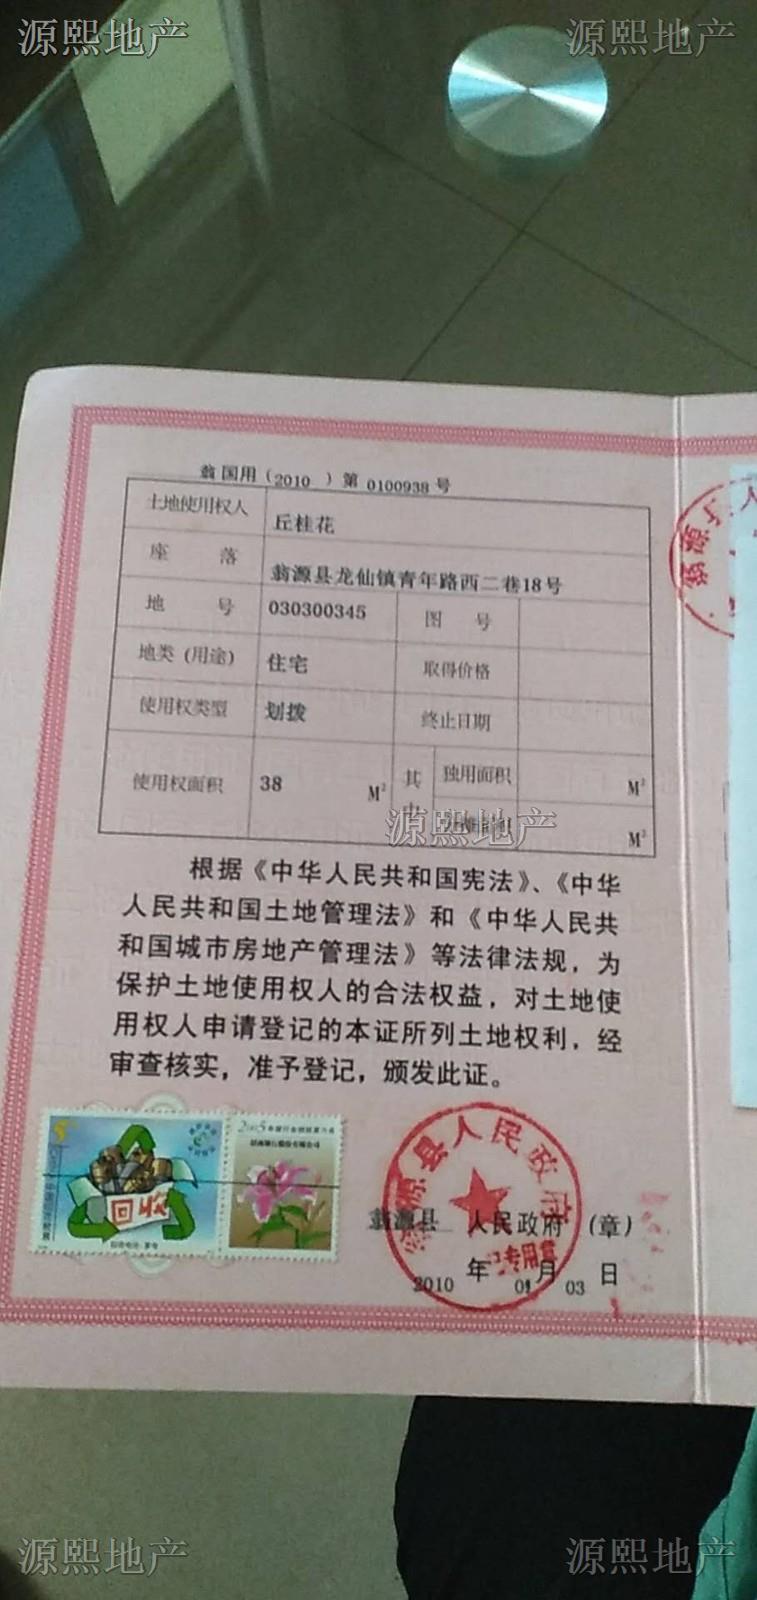 源熙地产
源熙地产
翁国用（2010）第 0100938 号
土地使用权人 丘桂花
座 落 翁源县龙仙镇青年路西二巷18号
地 号 030300345 图 号
地类（用途） 住宅 取得价格
使用权类型 划拨 终止日期
使用权面积 38 M² 其中 独用面积 M²
M²
源熙地产
根据《中华人民共和国宪法》、《中华
人民共和国土地管理法》和《中华人民共
和国城市房地产管理法》等法律法规，为
保护土地使用权人的合法权益，对土地使
用权人申请登记的本证所列土地权利，经
审查核实，准予登记，颁发此证。
回收
2005
翁源县人民政府
专用章
翁源县 人民政府（章）
2010 年 01 月 03 日
源熙地产
源熙地产